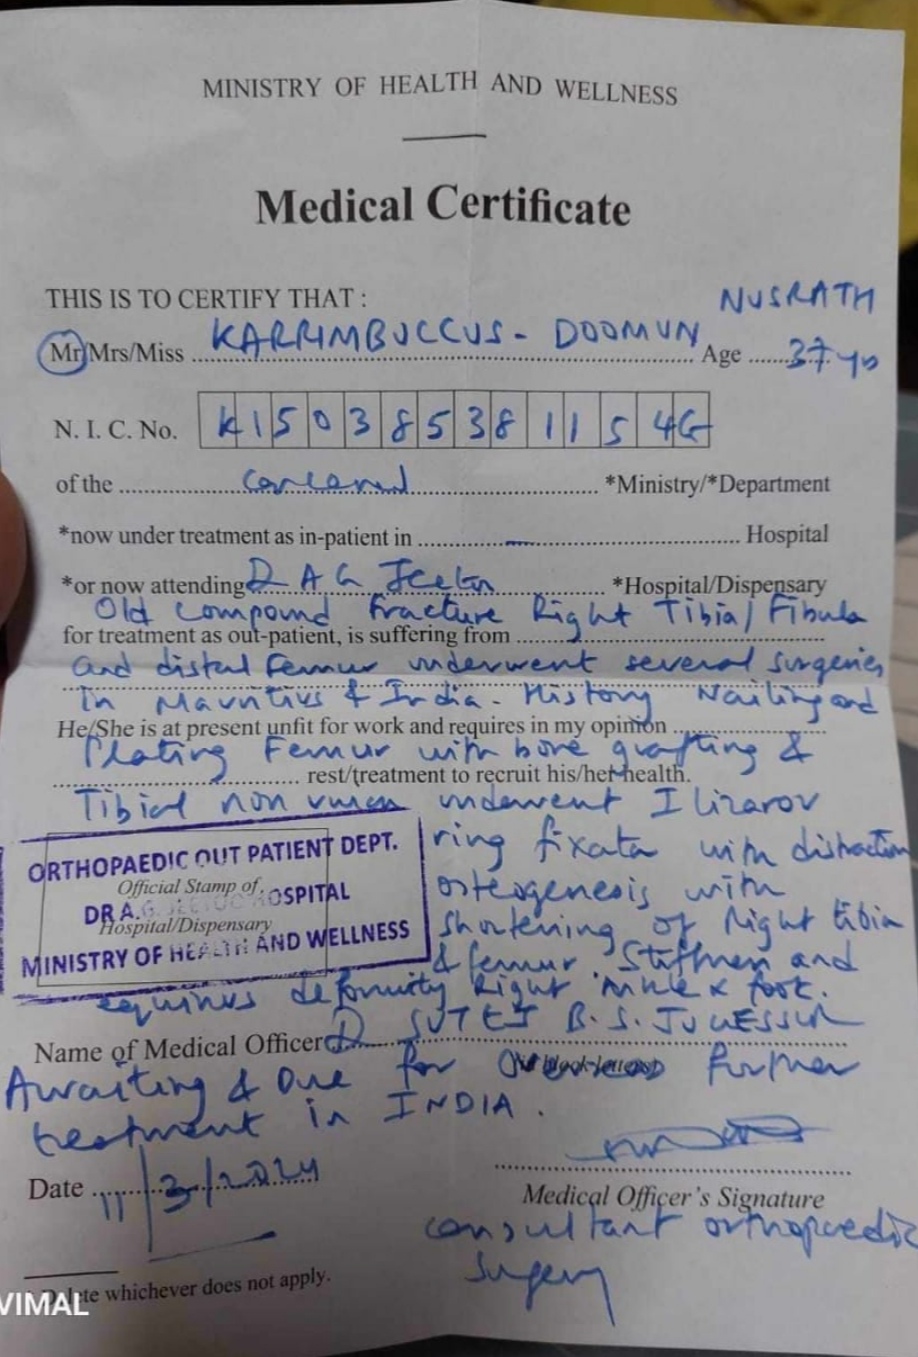 MINISTRY OF HEALTH AND WELLNESS
Medical Certificate
THIS IS TO CERTIFY THAT : NUSRATH
Mr/Mrs/Miss KARRIMBUCCUS - DOOMUN Age 37 yo
N. I. C. No. K150385381154G
of the *Ministry/*Department
*now under treatment as in-patient in — Hospital
*or now attending D A G Jeetoo *Hospital/Dispensary
Old Compound fracture Right Tibia/ Fibula
for treatment as out-patient, is suffering from
and distal femur underwent several surgeries
in Mauritius & India - History Nailing and
He/She is at present unfit for work and requires in my opinion
Plating Femur with bone grafting &
rest/treatment to recruit his/her health.
Tibial non union underwent Ilizarov
ring fixata with distraction
osteogenesis with
shortening of Right tibia
& femur. Stiffness and
equinus deformity Right ankle & foot.
ORTHOPAEDIC OUT PATIENT DEPT.
Official Stamp of
DR A.G. JEETOO HOSPITAL
Hospital/Dispensary
MINISTRY OF HEALTH AND WELLNESS
Name of Medical Officer D B. S.
in block letters
Awaiting & Due for further
treatment in INDIA.
Date 11/3/2024
Medical Officer's Signature
consultant orthopaedic
surgery
Delete whichever does not apply.
VIMAL